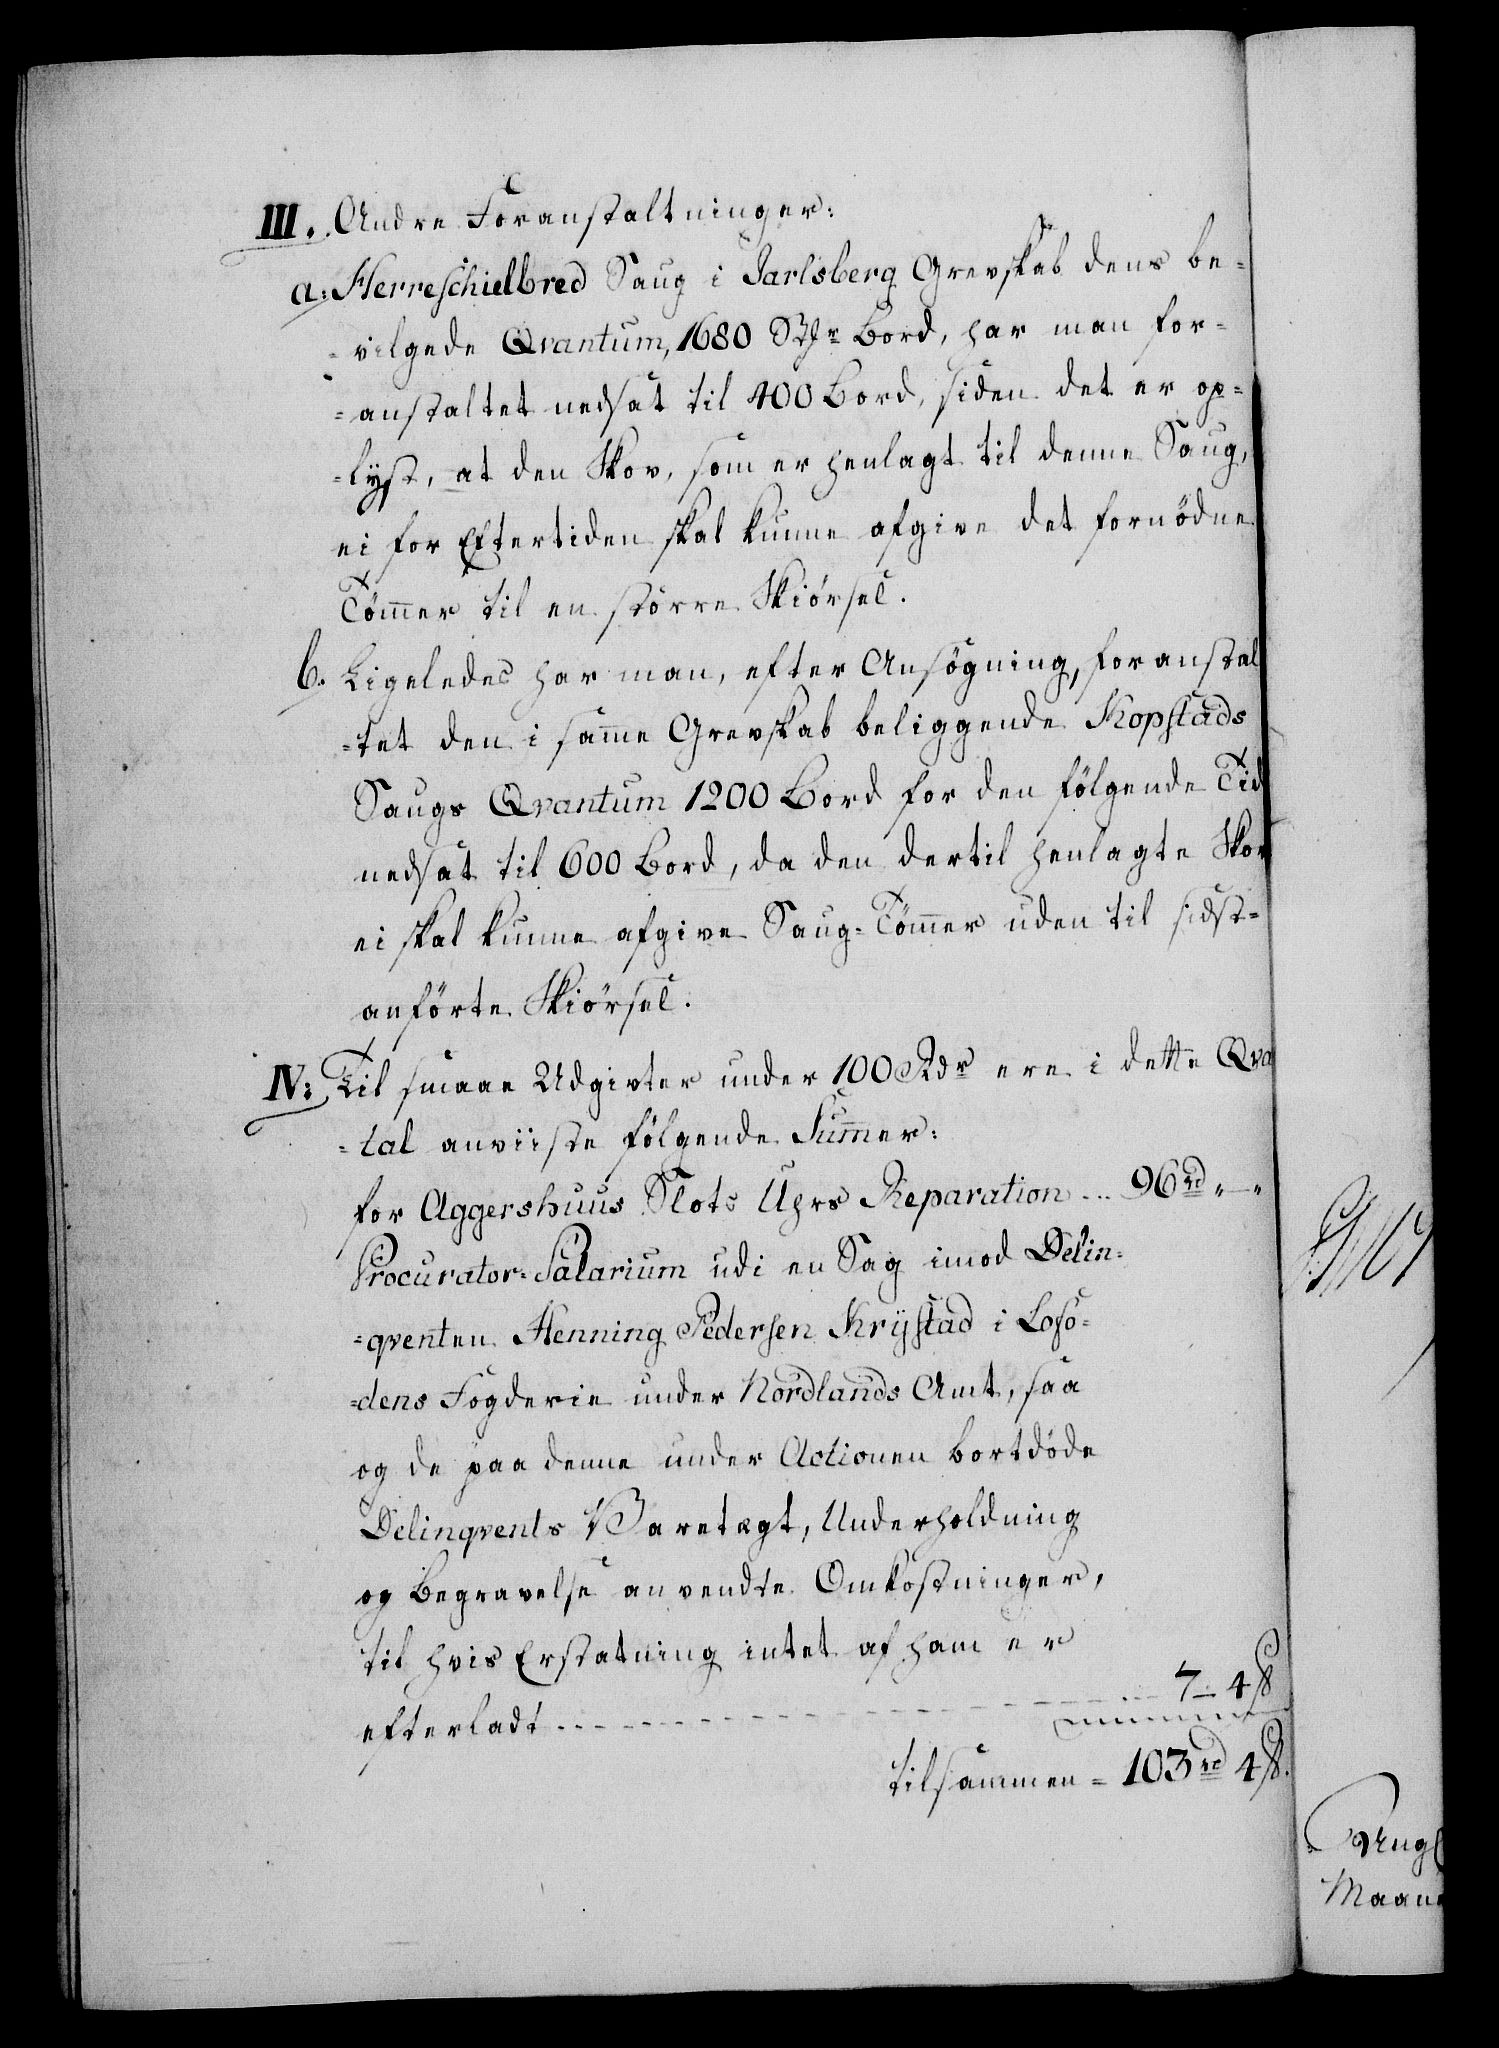 III. Andre Foranstaltninger:
a: Herreschielbred Saug i Jarlsberg Grevskab dens be-
-vilgede Qvantum, 1680 Bord, har man for-
-anstaltet nedsat til 400 Bord, siden det er op-
-lyst, at den Skov, som er henlagt til denne Saug,
ei for Eftertiden skal kunne afgive det fornödne
Töm̄er til en större Skiörsel.
b. Ligeledes har man, efter Ansögning, foranstal
-tet den i sam̄e Grevskab beliggende Kopstads
Saugs Qvantum 1200 Bord for den fölgende Tid
nedsat til 600 Bord, da den dertil henlagte Skov
ei skal kunne afgive Saug-Töm̄er uden til sidst-
anförte Skiörsel.
IV: Til smaae Udgivter under 100 Rdr ere i dette Qva
-tal anviiste fölgende Sum̄er:
for Aggershuus Slots Uhrs Reparation ... 96 rd „ — „
Procurator-Salarium udi en Sag imod Delin-
-qventen Henning Pedersen Krystad i Lofo-
-dens Fogderie under Nordlands Amt, saa
og de paa denne under Actionen bortdöde
Delinqvents Varetægt, Underholdning
og Begravelse anvendte Omkostninger,
til hvis Erstatning intet af ham er
efterladt ... 7 – 4 ß
tilsammen = 103 rd 4 ß.
Maane